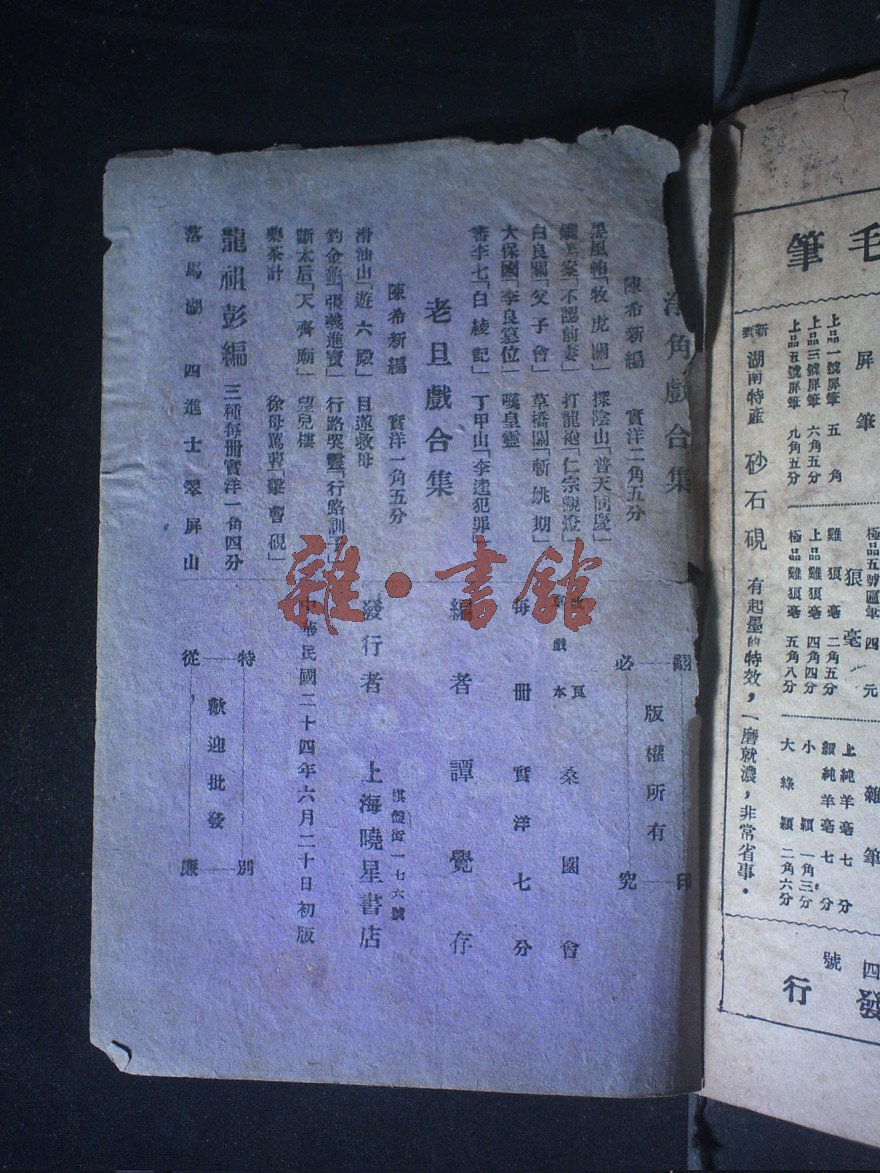 毛筆
屏筆
上品一號屏筆 五角
上品三號屏筆 六角五分
上品五號屏筆 九角五分
狼毫
極品五號圓筆 四元
雞狼毫 二角五分
上品雞狼毫 四角四分
極品雞狼毫 五角八分
雜筆
上純羊毫 七分
細純羊毫 七分
小穎 一角三分
大綠穎 二角六分
湖南特產 砂石硯 有起墨的特效，一磨就濃，非常省事．
四號
發行
淨角戲合集
陳希新編 實洋二角五分
黑風帕「牧虎關」 探陰山「普天同慶」
鍘美案「不認前妻」 打龍袍「仁宗觀燈」
白良關「父子會」 草橋關「斬姚期」
大保國「李良篡位」 嘆皇靈
審李七「白綾記」 丁甲山「李逵犯罪」
老旦戲合集
陳希新編 實洋一角五分
滑油山「遊六殿」 目蓮救母
釣金龜「張義進寶」 行路哭靈「行路訓子」
斷太后「天齊廟」 望兒樓
藥茶計 徐母罵曹「擊曹硯」
龍祖彭編 三種每冊實洋一角四分
落馬湖 四進士 翠屏山
翻印必究
版權所有
戲本 桑國會
每冊實洋七分
編者 譚覺存
發行者 上海曉星書店
棋盤街一七六號
中華民國二十四年六月二十日初版
特別從廉
歡迎批發
雜·書館